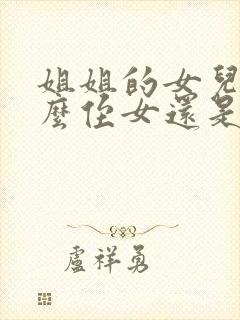 姐姐的女兒
麼侄女還是
盧祥勇